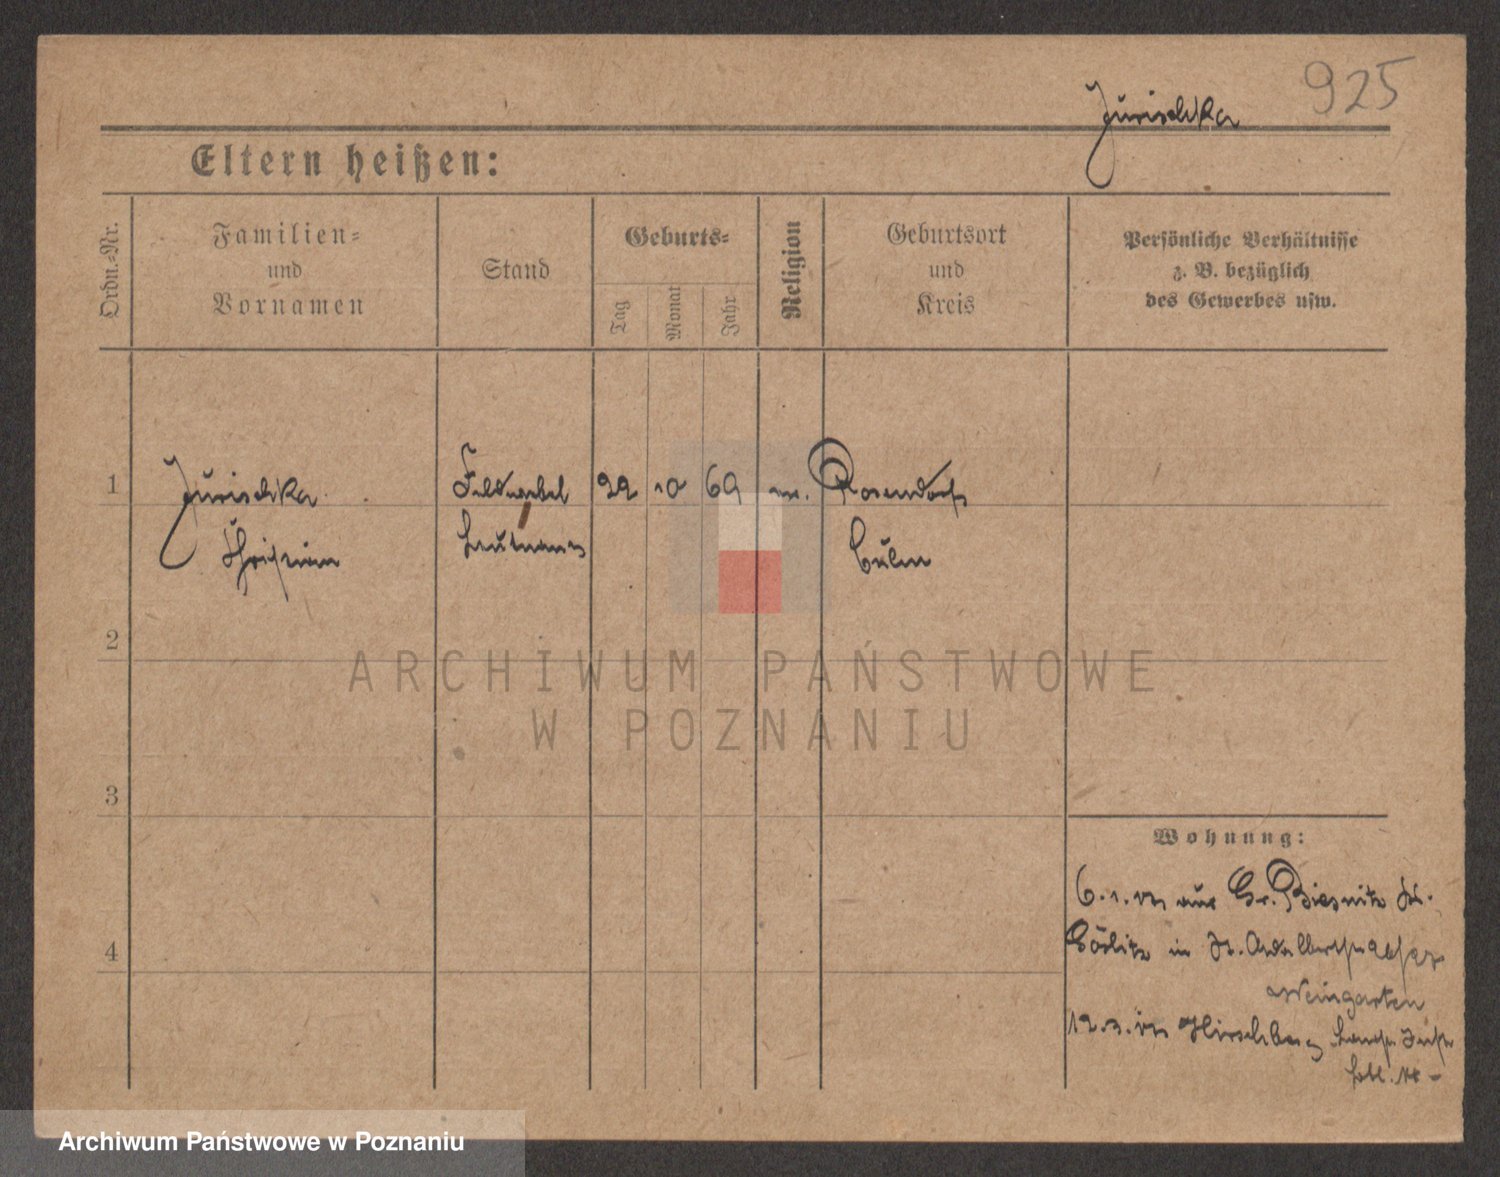 925
Jurischka
Eltern heißen:
Ordn.-Nr.
Familien-
und
Vornamen
Stand
Geburts-
Tag
Monat
Jahr
Religion
Geburtsort
und
Kreis
Persönliche Verhältnisse
z. B. bezüglich
des Gewerbes usw.
1
Jurischka
Christian
Feldwebel
Leutnant
22 10 69
Rosendorf
Culm
2
ARCHIWUM PAŃSTWOWE
W POZNANIU
3
Wohnung:
6.1. aus Gr. Biesnitz
4
Görlitz in St. Adalbertstr
Weingarten
Hirschberg
Archiwum Państwowe w Poznaniu